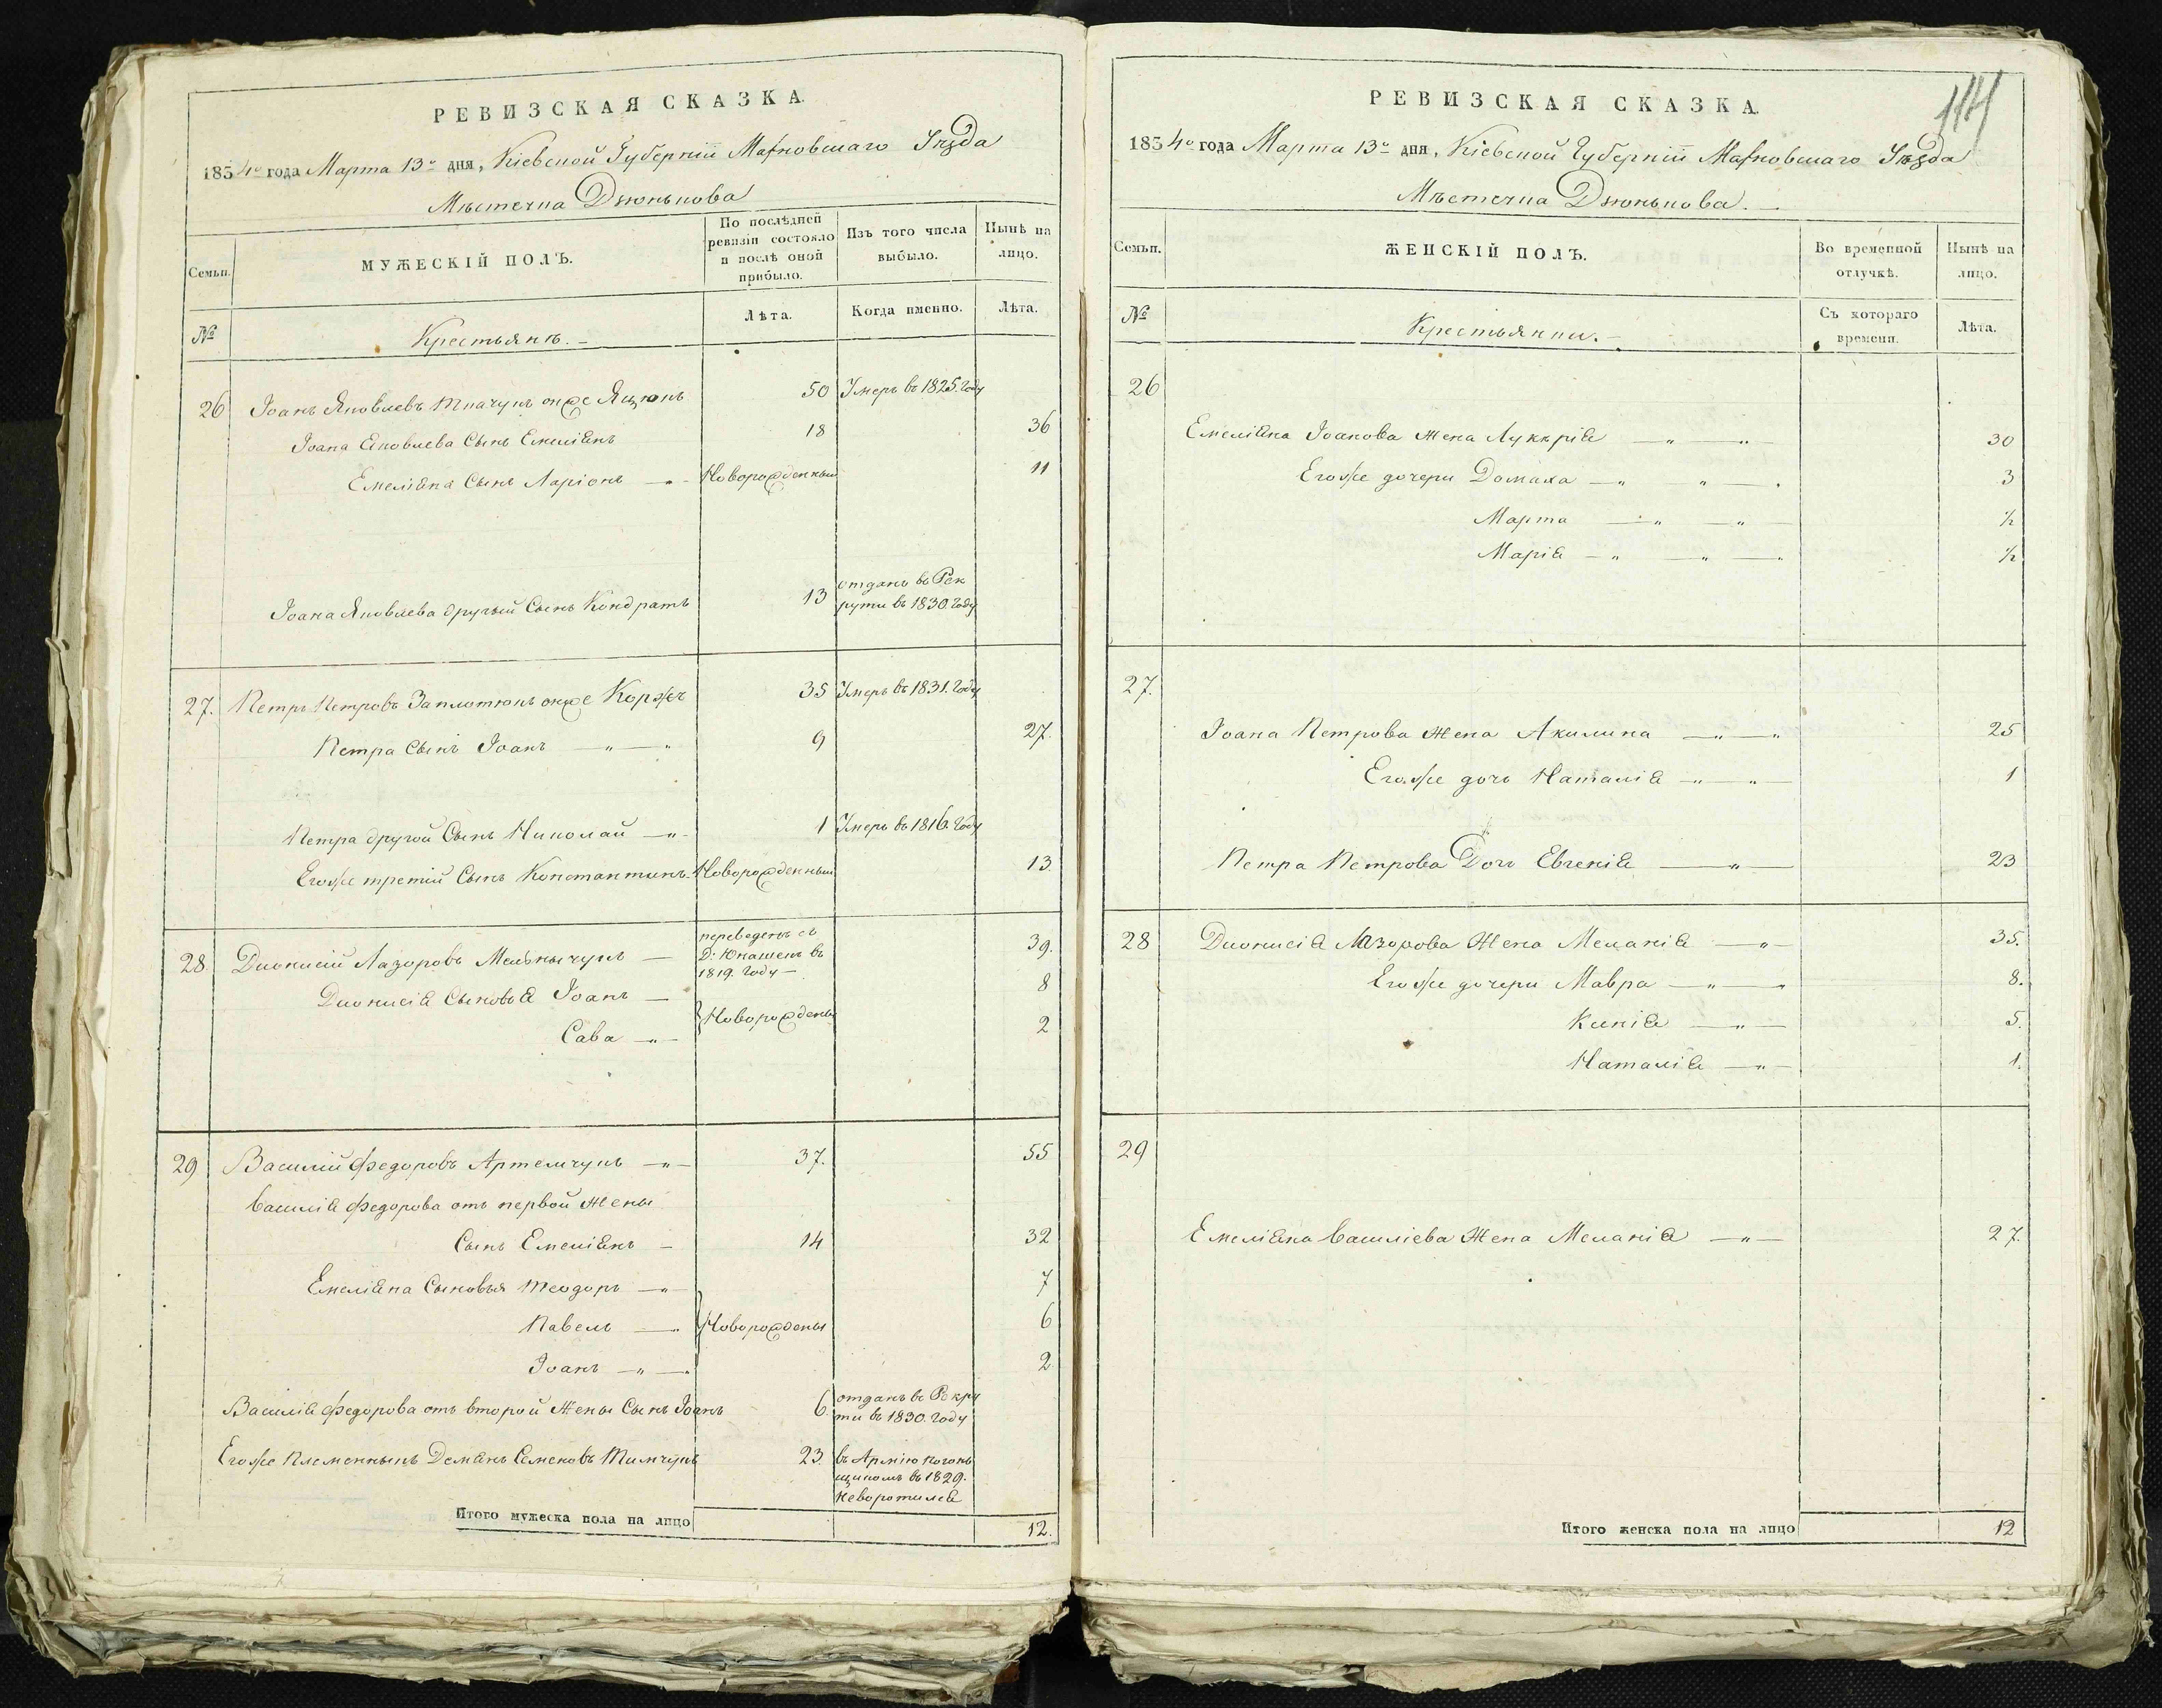 РЕВИЗСКАЯ СКАЗКА.
1834го года Марта 13го дня, Кіевской Губерніи Махновскаго Уѣзда
Мѣстечка Дзюнькова
Семьи.
МУЖЕСКІЙ ПОЛЪ.
По послѣдней ревизіи состояло и послѣ оной прибыло.
Изъ того числа выбыло.
Нынѣ на лицо.
№
Крестьянъ. —
Лѣта.
Когда именно.
Лѣта.
26 Іоанъ Яковлевъ Ткачукъ онже Яцюкъ 50 Умеръ въ 1825. Году
Іоана Яковлева Сынъ Емеліянъ 18 36
Емеліяна Сынъ Ларіонъ — Новорожденный 11
Іоана Яковлева другый Сынъ Кондратъ 13 отданъ въ Рек
рути въ 1830. Году
27. Петръ Петровъ Заплотюкъ онже Коржъ 35 Умеръ въ 1831. Году
Петра Сынъ Іоанъ — " — " 9 27.
Петра другой Сынъ Николай — " — 1 Умеръ въ 1816. Году
Егоже третій Сынъ Константинъ. Новорожденный 13.
28. Дионисій Лазоровъ Мельничукъ — переведенъ съ
Д: Юнашекъ въ
1819. Году — 39.
Дионисія Сыновья Іоанъ — 8
Новорождены
Сава — " — 2
29 Василій Федоровъ Артемчукъ — " — 37. 55
Василія Федорова отъ первой Жены
Сынъ Емеліянъ — 14 32
Емеліяна Сыновья Теодоръ — " 7
Павелъ — Новорождены 6
Іоанъ — " — 2
Василія Федорова отъ второй Жены Сынъ Іоанъ 6. отданъ въ Рекру
ти въ 1830. Году
Егоже Племенникъ Демянъ Семеновъ Тимчукъ 23. въ Армію погонь
щикомъ въ 1829.
Неворотился
Итого мужеска пола на лицо 12.
114
РЕВИЗСКАЯ СКАЗКА.
1834го года Марта 13го дня, Кіевской Губерніи Махновскаго Уѣзда
Мѣстечка Дзюнькова. —
Семьи.
ЖЕНСКІЙ ПОЛЪ.
Во временной отлучкѣ.
Нынѣ на лицо.
№
Крестьянки. —
Съ котораго времени.
Лѣта.
26
Емеліяна Іоанова Жена Луккрія — " — " — 30
Егоже дочери Домаха — " " — 3
Марта — " — " — ½
Марія — " — " — ½
27.
Іоана Петрова Жена Акилина — " — " 25
Егоже дочь Наталія — " — " — 1
Петра Петрова Дочь Евгенія — " — 23
28 Дионисія Лазорова Жена Меланія — " — 35.
Егоже дочери Мавра — " — 8.
Ксенія — " — 5.
Наталія — " — 1.
29
Емеліяна Василіева Жена Меланія — " — 27.
Итого женска пола на лицо 12